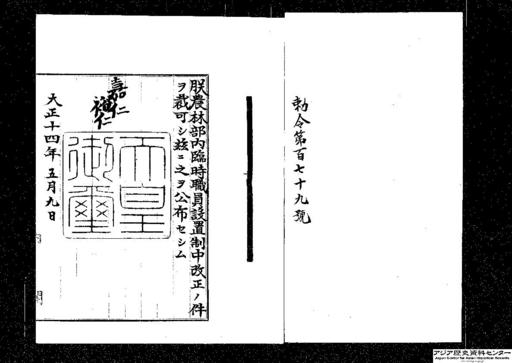 勅令第百七十九號
朕農林部內臨時職員設置制中改正ノ件
ヲ裁可シ玆ニ之ヲ公布セシム
嘉仁
裕仁
天皇
御璽
大正十四年五月九日
アジア歴史資料センター
Japan Center for Asian Historical Records